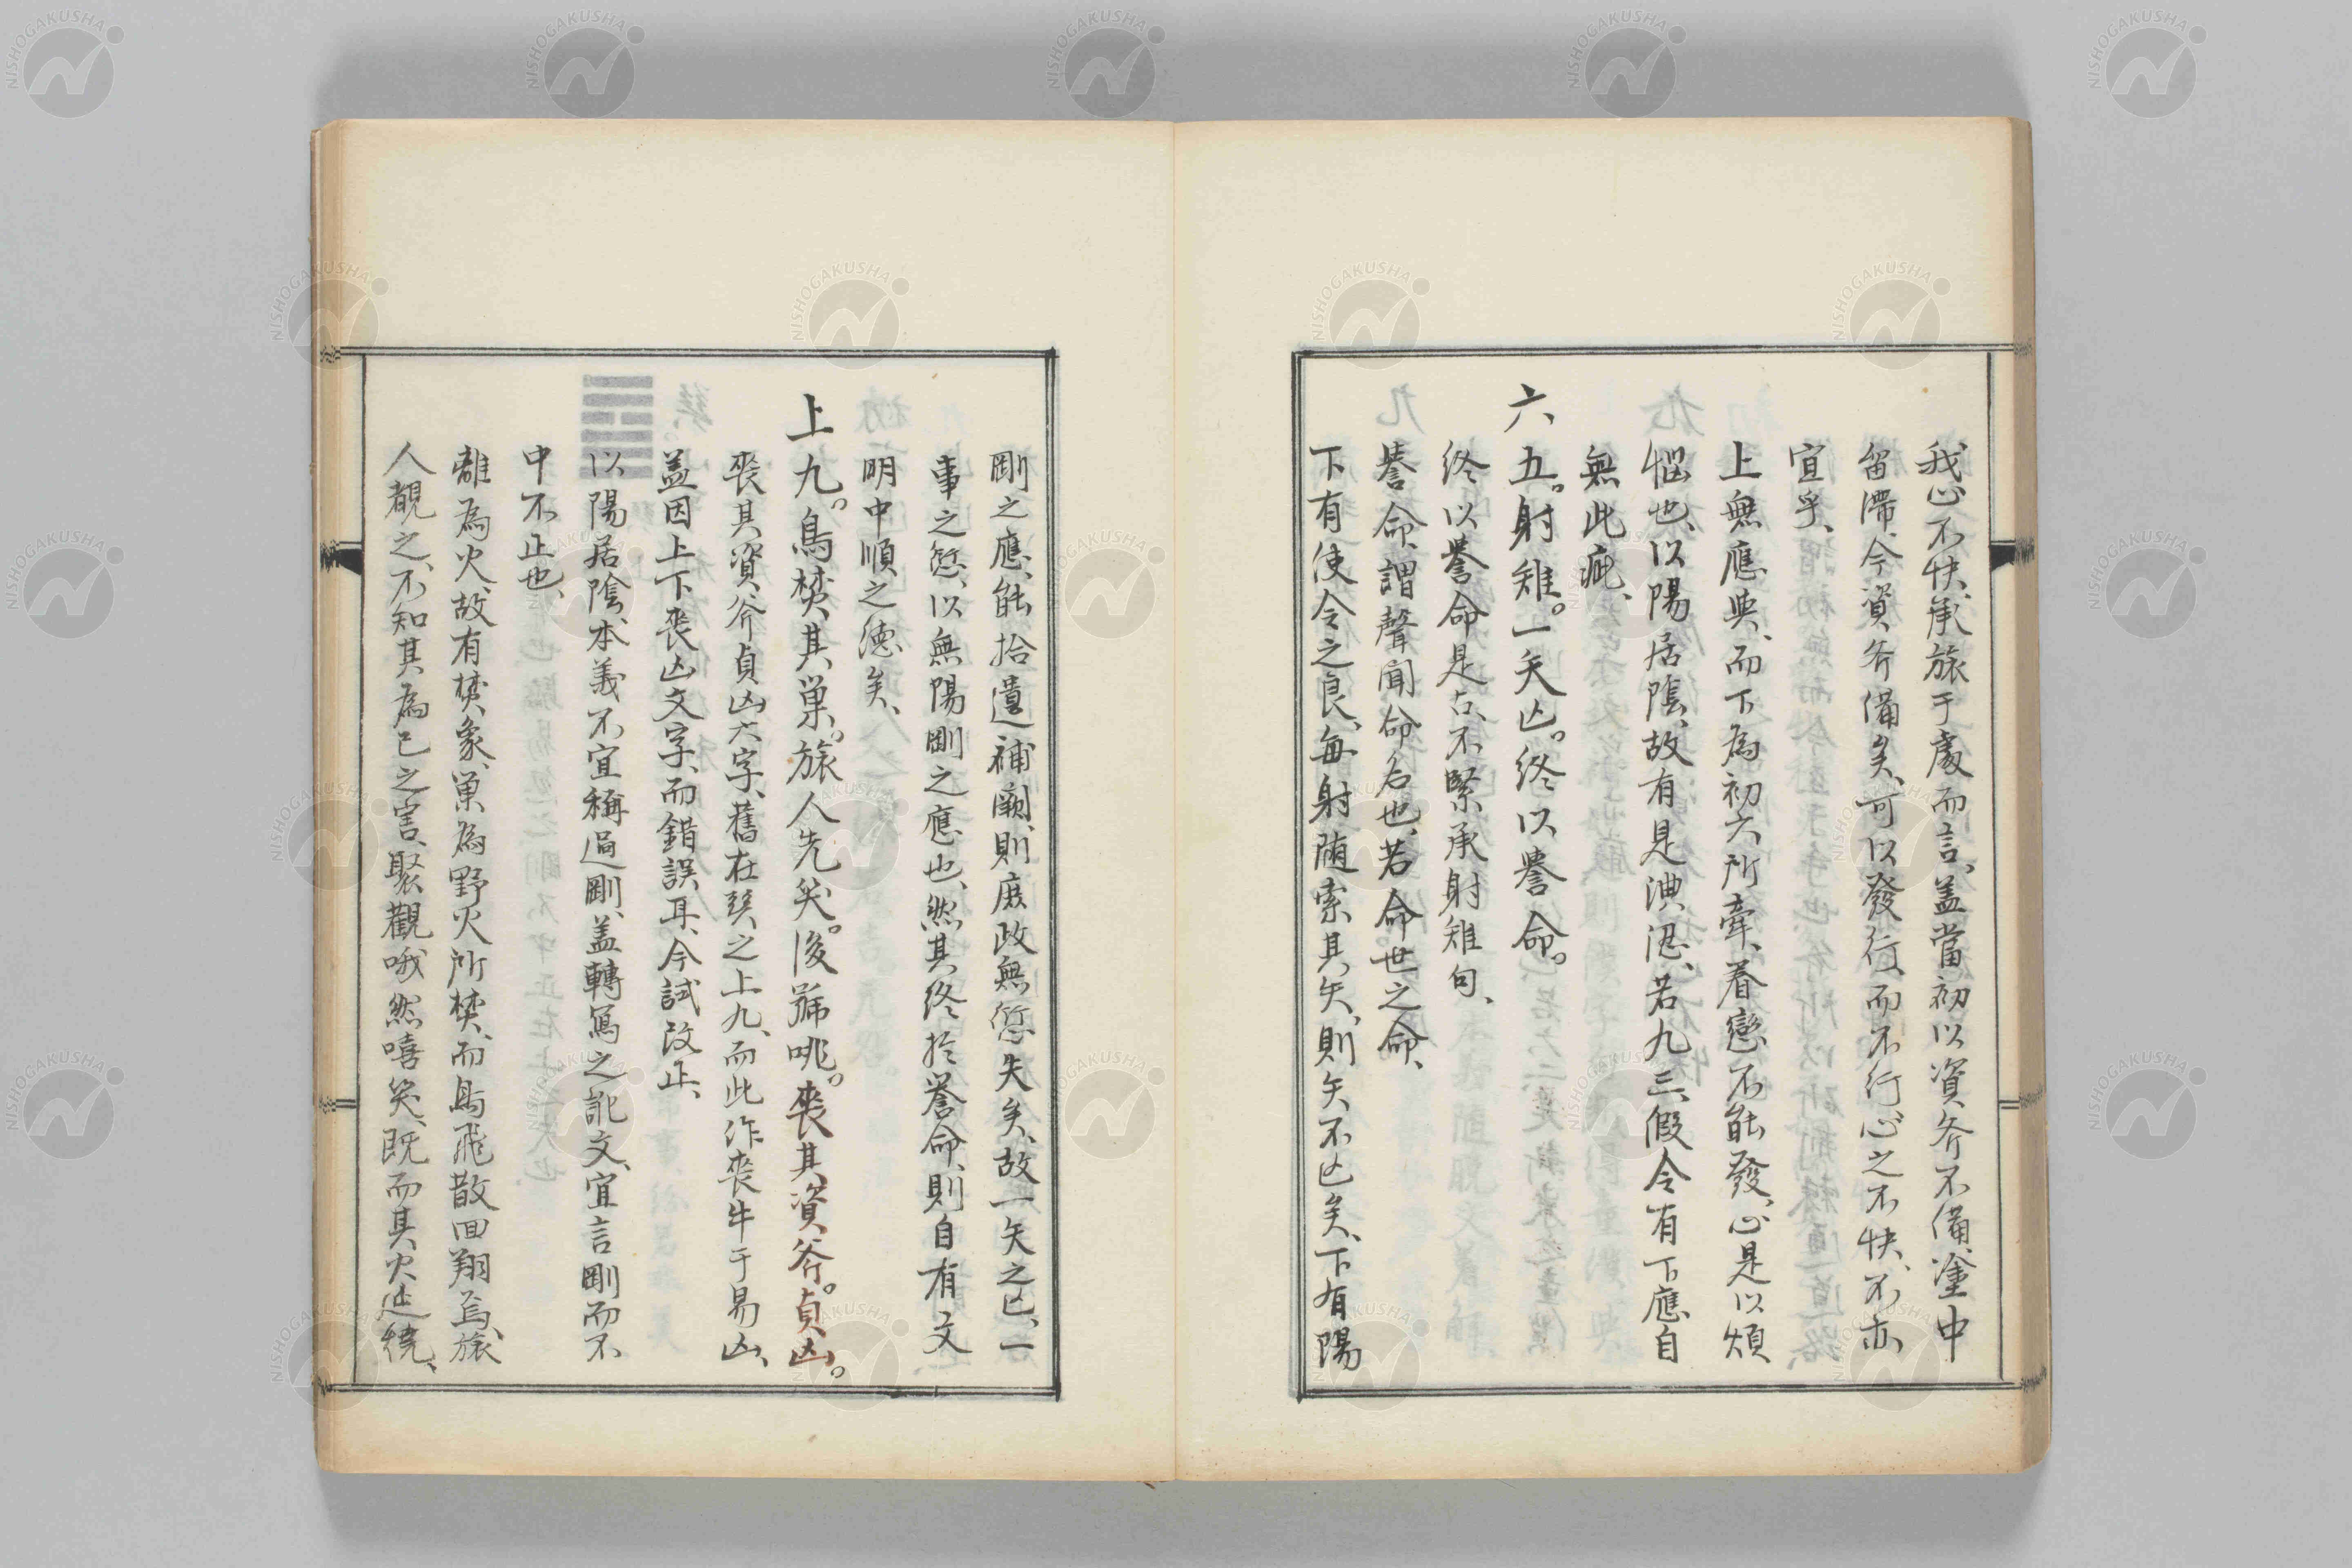 我心不快、承旅于處而言、蓋當初以資斧不備、塗中
留滯、今資斧備矣、可以發行、而不行心之不快、不亦
宜乎、
上無應與、而下為初六所牽、眷戀不能發、心是以煩
惱也、以陽居陰、故有是淟涊、若九三假令有下應自
無此疵、
六五。射雉。一矢亡。終以譽命。
終以譽命是占、不緊承射雉句、
譽命、謂聲聞命名也、若命世之命、
下有使令之良、每射隨索其矢、則矢不亡矣、下有陽
剛之應、能拾遺補闕、則庶政無愆失矣、故一矢之亡、一
事之愆、以無陽剛之應也、然其終於譽命、則自有文
明中順之德矣、
上九。鳥焚其巢。旅人先笑。後號咷。喪其資斧。貞凶。
喪其資斧貞凶六字、舊在巽之上九、而此作喪牛于易凶、
蓋因上下喪凶文字、而錯誤耳、今試改正、
以陽居陰、本義不宜稱過剛、蓋轉寫之訛文、宜言剛而不
中不正也、
離為火、故有焚象、巢為野火所焚、而鳥飛散回翔焉、旅
人覩之、不知其為己之害、聚觀哦然嘻笑、既而其火延燒、
NISHOGAKUSHA